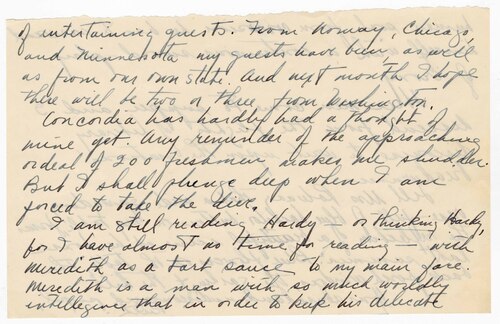 of entertaining guests. From Norway, Chicago,
and Minnesota my guests have been, as well
as from our own state. And next month I hope
there will be two or three from Washington.
Concordia has hardly had a thought of
mine yet. Any reminder of the approaching
ordeal of 200 freshmen makes me shudder.
But I shall plunge deep when I am
forced to take the dive.
I am still reading Hardy — or thinking Hardy,
for I have almost no time for reading — with
Meredith as a tart sauce to my main fare.
Meredith is a man with so much worldly
intellegence that in order to keep his delicate